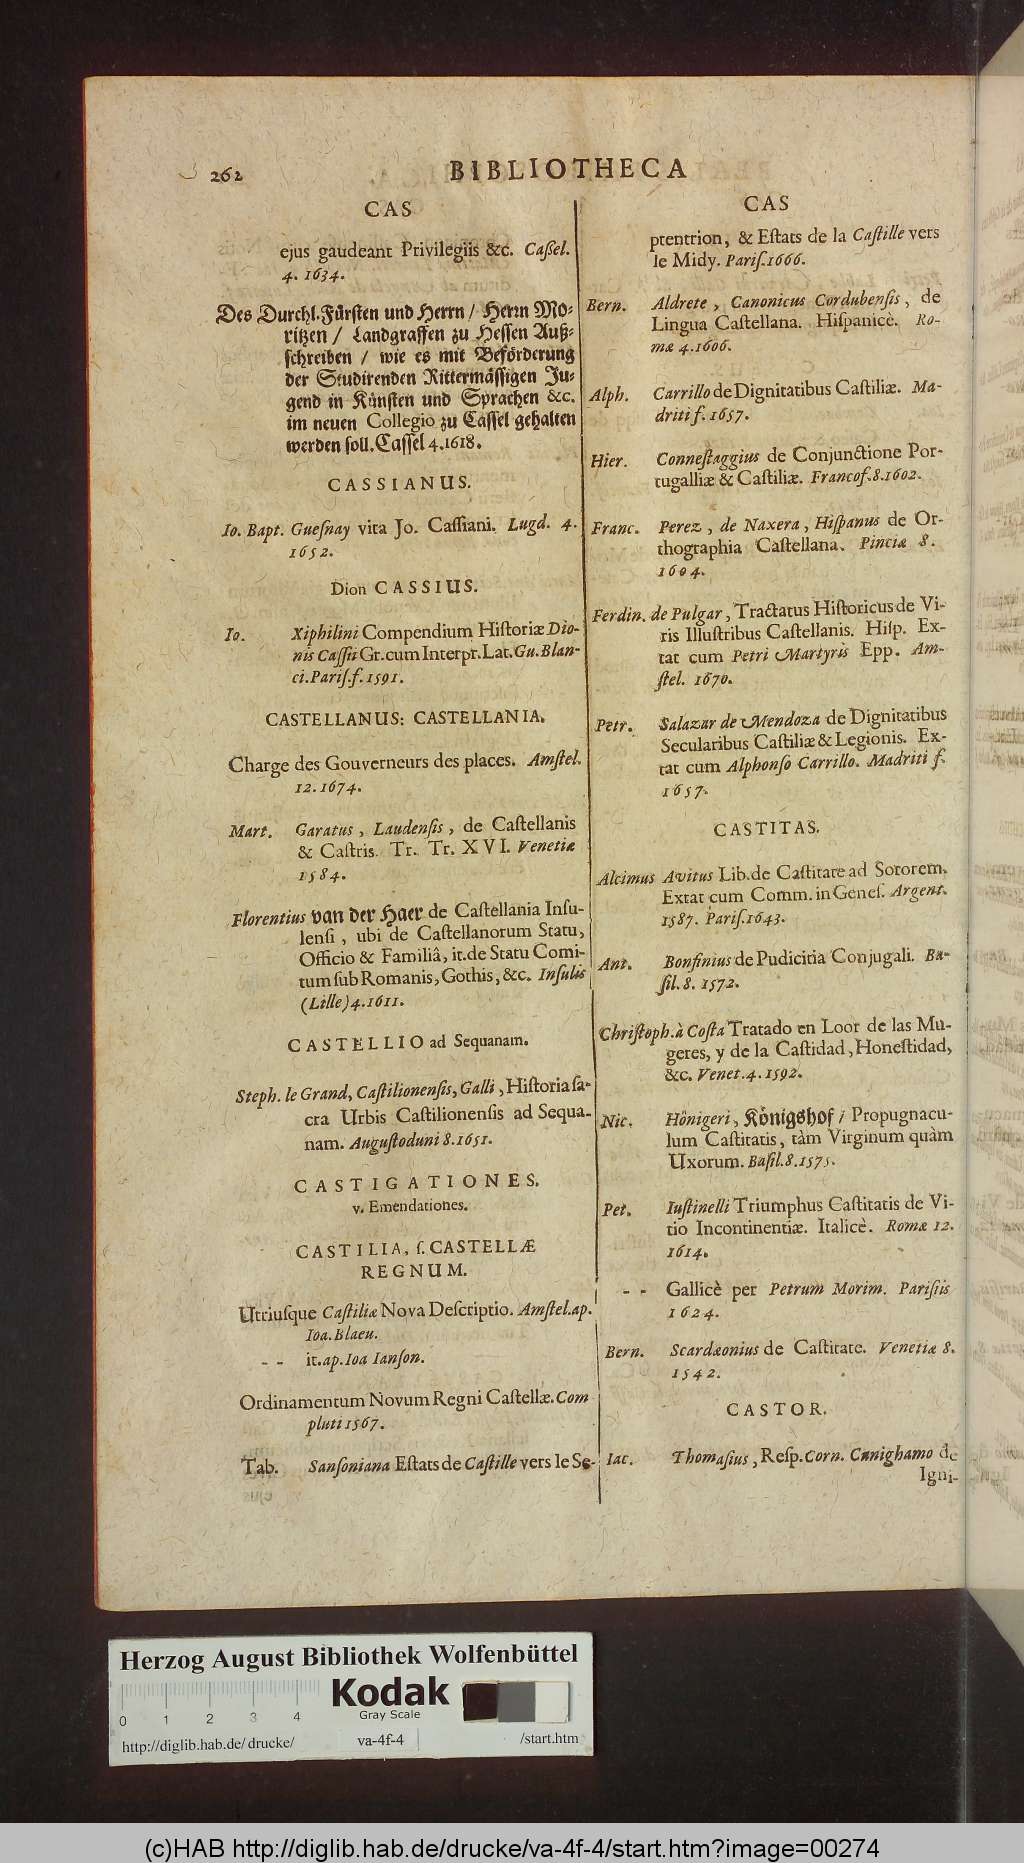 262
BIBLIOTHECA
CAS
ejus gaudeant Privilegiis &c. Caßel.
4. 1634.
Des Durchl. Fürsten und Herrn / Herrn Mo-
ritzen / Landgraffen zu Hessen Auß-
schreiben / wie es mit Beförderung
der Studirenden Rittermässigen Ju-
gend in Künsten und Sprachen &c.
im neuen Collegio zu Cassel gehalten
werden soll. Cassel 4. 1618.
CASSIANUS.
Io. Bapt. Guesnay vita Jo. Cassiani. Lugd. 4.
1652.
Dion CASSIUS.
Io. Xiphilini Compendium Historiæ Dio-
nis Cassii Gr. cum Interpr. Lat. Gu. Blan-
ci. Paris. f. 1591.
CASTELLANUS: CASTELLANIA.
Charge des Gouverneurs des places. Amstel.
12. 1674.
Mart. Garatus, Laudensis, de Castellanis
& Castris. Tr. Tr. XVI. Venetiæ
1584.
Florentius van der Haer de Castellania Insu-
lensi, ubi de Castellanorum Statu,
Officio & Familiâ, it. de Statu Comi-
tum sub Romanis, Gothis, &c. Insulis
(Lille) 4. 1611.
CASTELLIO ad Sequanam.
Steph. le Grand, Castilionensis, Galli, Historia sa-
cra Urbis Castilionensis ad Sequa-
nam. Augustoduni 8. 1651.
CASTIGATIONES.
v. Emendationes.
CASTILIA, s. CASTELLÆ
REGNUM.
Utriusque Castiliæ Nova Descriptio. Amstel. ap.
Ioa. Blaeu.
- - it. ap. Ioa Ianson.
Ordinamentum Novum Regni Castellæ. Com
pluti 1567.
Tab. Sansoniana Estats de Castille vers le Se-
CAS
ptentrion, & Estats de la Castille vers
le Midy. Paris. 1666.
Bern. Aldrete, Canonicus Cordubensis, de
Lingua Castellana. Hispanicè. Ro-
mæ 4. 1606.
Alph. Carrillo de Dignitatibus Castiliæ. Ma-
driti f. 1657.
Hier. Connestaggius de Conjunctione Por-
tugalliæ & Castiliæ. Francof. 8. 1602.
Franc. Perez, de Naxera, Hispanus de Or-
thographia Castellana. Pinciæ 8.
1604.
Ferdin. de Pulgar, Tractatus Historicus de Vi-
ris Illustribus Castellanis. Hisp. Ex-
tat cum Petri Martyris Epp. Am-
stel. 1670.
Petr. Salazar de Mendoza de Dignitatibus
Secularibus Castiliæ & Legionis. Ex-
tat cum Alphonso Carrillo. Madriti f.
1657.
CASTITAS.
Alcimus Avitus Lib. de Castitate ad Sororem.
Extat cum Comm. in Genes. Argent.
1587. Paris. 1643.
Ant. Bonfinius de Pudicitia Conjugali. Ba-
sil. 8. 1572.
Christoph. à Costa Tratado en Loor de las Mu-
geres, y de la Castidad, Honestidad,
&c. Venet. 4. 1592.
Nic. Hönigeri, Königshof / Propugnacu-
lum Castitatis, tàm Virginum quàm
Uxorum. Basil. 8. 1575.
Pet. Iustinelli Triumphus Castitatis de Vi-
tio Incontinentiæ. Italicè. Romæ 12.
1614.
- - Gallicè per Petrum Morim. Parisiis
1624.
Bern. Scardæonius de Castitate. Venetiæ 8.
1542.
CASTOR.
Iac. Thomasius, Resp. Corn. Cunighamo de
Igni-
Herzog August Bibliothek Wolfenbüttel
Kodak
Gray Scale
0 1 2 3 4
http://diglib.hab.de/ drucke/ va-4f-4 /start.htm
(c)HAB http://diglib.hab.de/drucke/va-4f-4/start.htm?image=00274